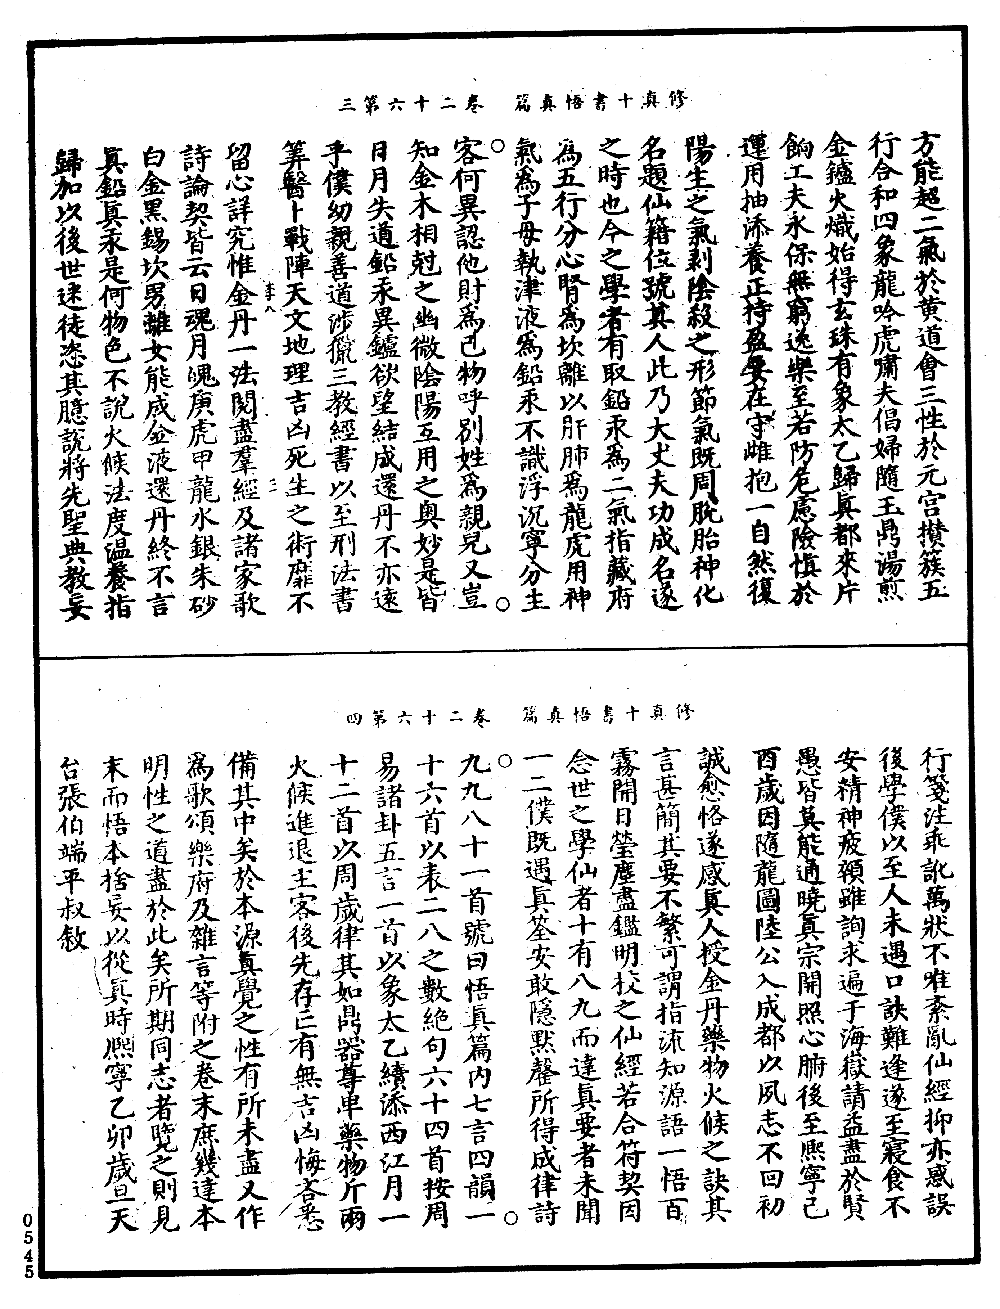 修真十書悟真篇　卷二十六第三
方能超二氣於黃道會三性於元宮攢簇五
行合和四象龍吟虎嘯夫倡婦隨玉鼎湯煎
金鑪火熾始得玄珠有象太乙歸真都來片
餉工夫永保無窮逸樂至若防危慮險慎於
運用抽添養正持盈要在守雌抱一自然復
陽生之氣剥陰殺之形節氣既周脫胎神化
名題仙籍位號真人此乃大丈夫功成名遂
之時也今之學者有取鉛汞為二氣指藏府
為五行分心腎為坎離以肝肺為龍虎用神
氣為子母執津液為鉛汞不識浮沉寧分主
客何異認他財為己物呼別姓為親兒又豈
知金木相尅之幽微陰陽互用之奧妙是皆
日月失道鉛汞異鑪欲望結成還丹不亦遠
乎僕幼親善道涉獵三教經書以至刑法書
筭醫卜戰陣天文地理吉凶死生之術靡不
李八　三
留心詳究惟金丹一法閱盡羣經及諸家歌
詩論契皆云日魂月魄庚虎甲龍水銀朱砂
白金黑錫坎男離女能成金液還丹終不言
真鉛真汞是何物色不說火候法度溫養指
歸加以後世迷徒恣其臆說將先聖典教妄
修真十書悟真篇　卷二十六第四
行箋注乖訛萬狀不唯紊亂仙經抑亦惑誤
後學僕以至人未遇口訣難逢遂至寢食不
安精神疲顇雖詢求遍于海嶽請益盡於賢
愚皆莫能通曉真宗開照心腑後至熙寧己
酉歲因隨龍圖陸公入成都以夙志不回初
誠愈恪遂感真人授金丹藥物火候之訣其
言甚簡其要不繁可謂指流知源語一悟百
霧開日瑩塵盡鑑明校之仙經若合符契因
念世之學仙者十有八九而達真要者未聞
一二僕既遇真筌安敢隱默罄所得成律詩
九九八十一首號曰悟真篇內七言四韻一
十六首以表二八之數絕句六十四首按周
易諸卦五言一首以象太乙續添西江月一
十二首以周歲律其如鼎器尊卑藥物斤兩
火候進退主客後先存亡有無吉凶悔吝悉
備其中矣於本源真覺之性有所未盡又作
為歌頌樂府及雜言等附之卷末庶幾達本
明性之道盡於此矣所期同志者覽之則見
末而悟本捨妄以從真時熙寧乙卯歲旦天
台張伯端平叔敘
0545